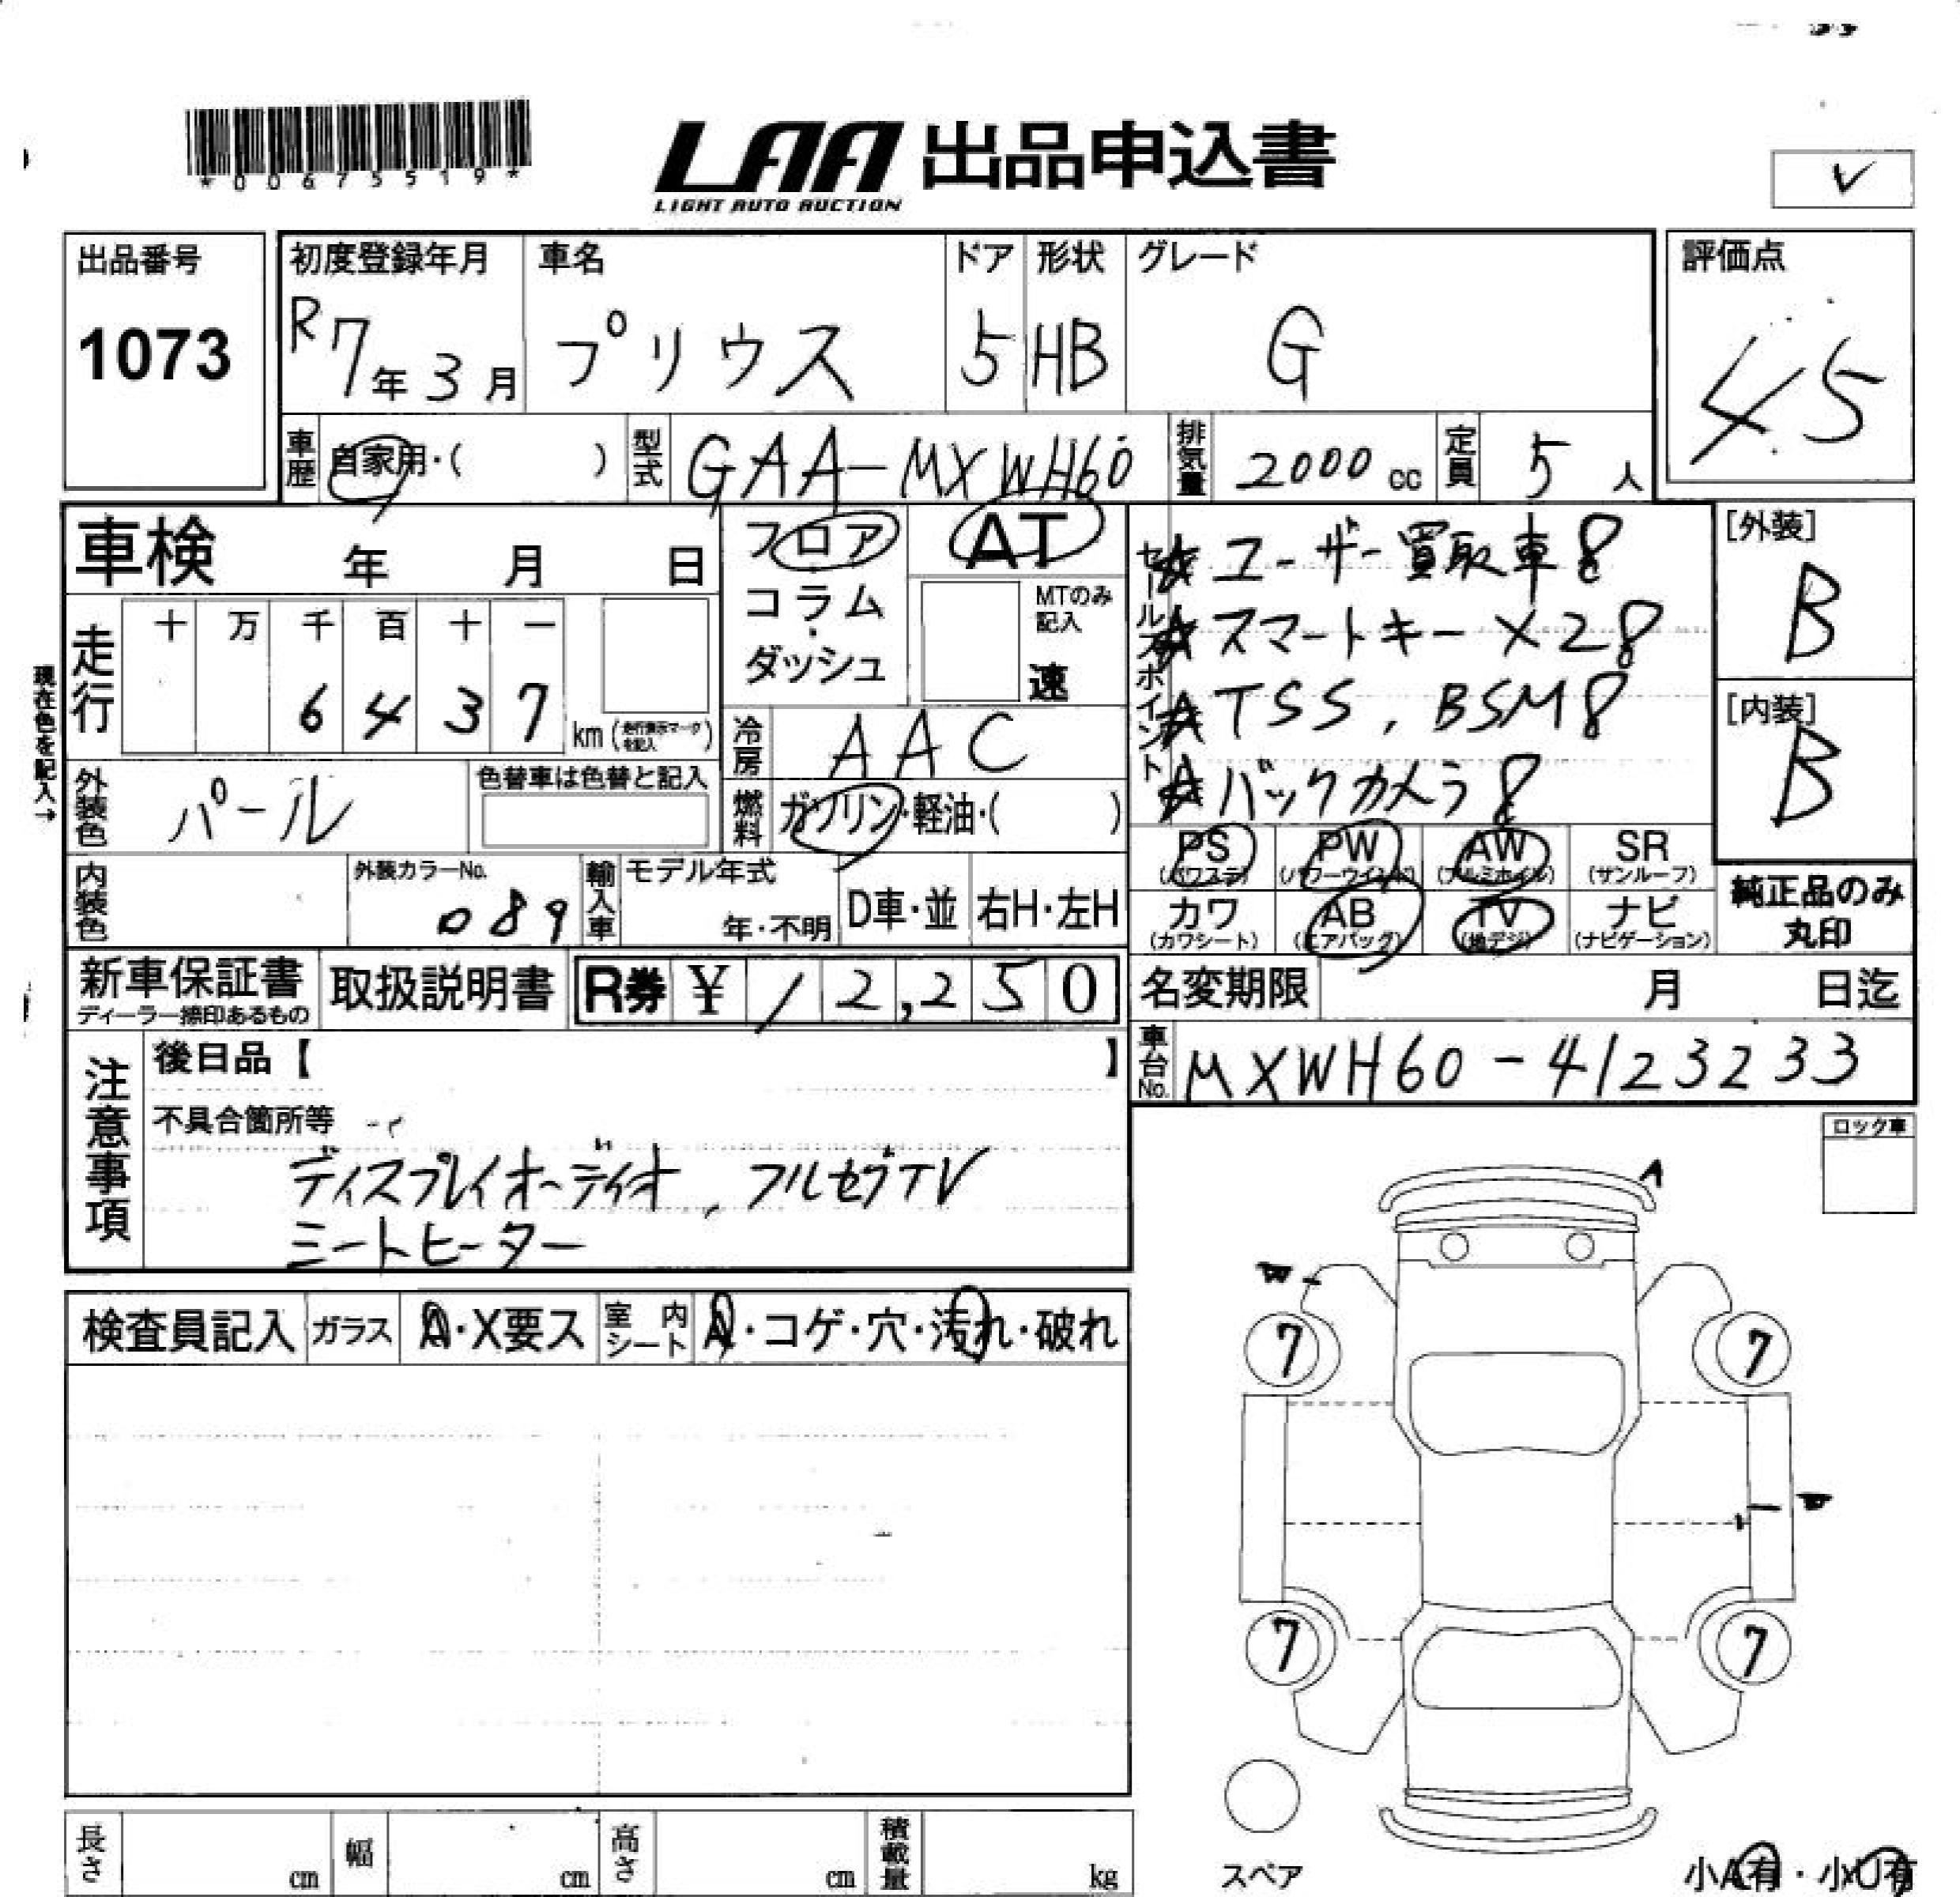 *00675519*
LAA 出品申込書
LIGHT AUTO AUCTION
出品番号
1073
初度登録年月
R7年3月
車名
プリウス
ドア
5
形状
HB
グレード
G
評価点
4.5
車歴 自家用・( )
型式 GAA-MXWH60
排気量 2000 cc
定員 5人
車検 年 月 日
フロア
コラム
ダッシュ
AT
MTのみ
記入
速
走行
十 万 千 百 十 一
6 4 3 7
km (走行表示マークを記入)
現在色を記入→
冷房 AAC
外装色 パール
色替車は色替と記入
燃料 ガソリン・軽油・( )
内装色
外装カラーNo.
089
輸入車
モデル年式
年・不明
D車・並
右H・左H
セールスポイント
ユーザー買取車
スマートキー×2
TSS, BSM
バックカメラ
[外装]
B
[内装]
B
PS
(パワステ)
PW
(パワーウインド)
AW
(アルミホイル)
SR
(サンルーフ)
カワ
(カワシート)
AB
(エアバッグ)
TV
(地デジ)
ナビ
(ナビゲーション)
純正品のみ
丸印
新車保証書
ディーラー捺印あるもの
取扱説明書
R券 ¥ 12,250
名変期限 月 日迄
車台No. MXWH60-4123233
注意事項
後日品【 】
不具合箇所等
ディスプレイオーディオ, フルセグTV
シートヒーター
ロック車
検査員記入
ガラス
A・X要ス
室内シート
A・コゲ・穴・汚れ・破れ
A
W
7
7
7
7
長さ cm
幅 cm
高さ cm
積載量 kg
スペア
小A有・小U有